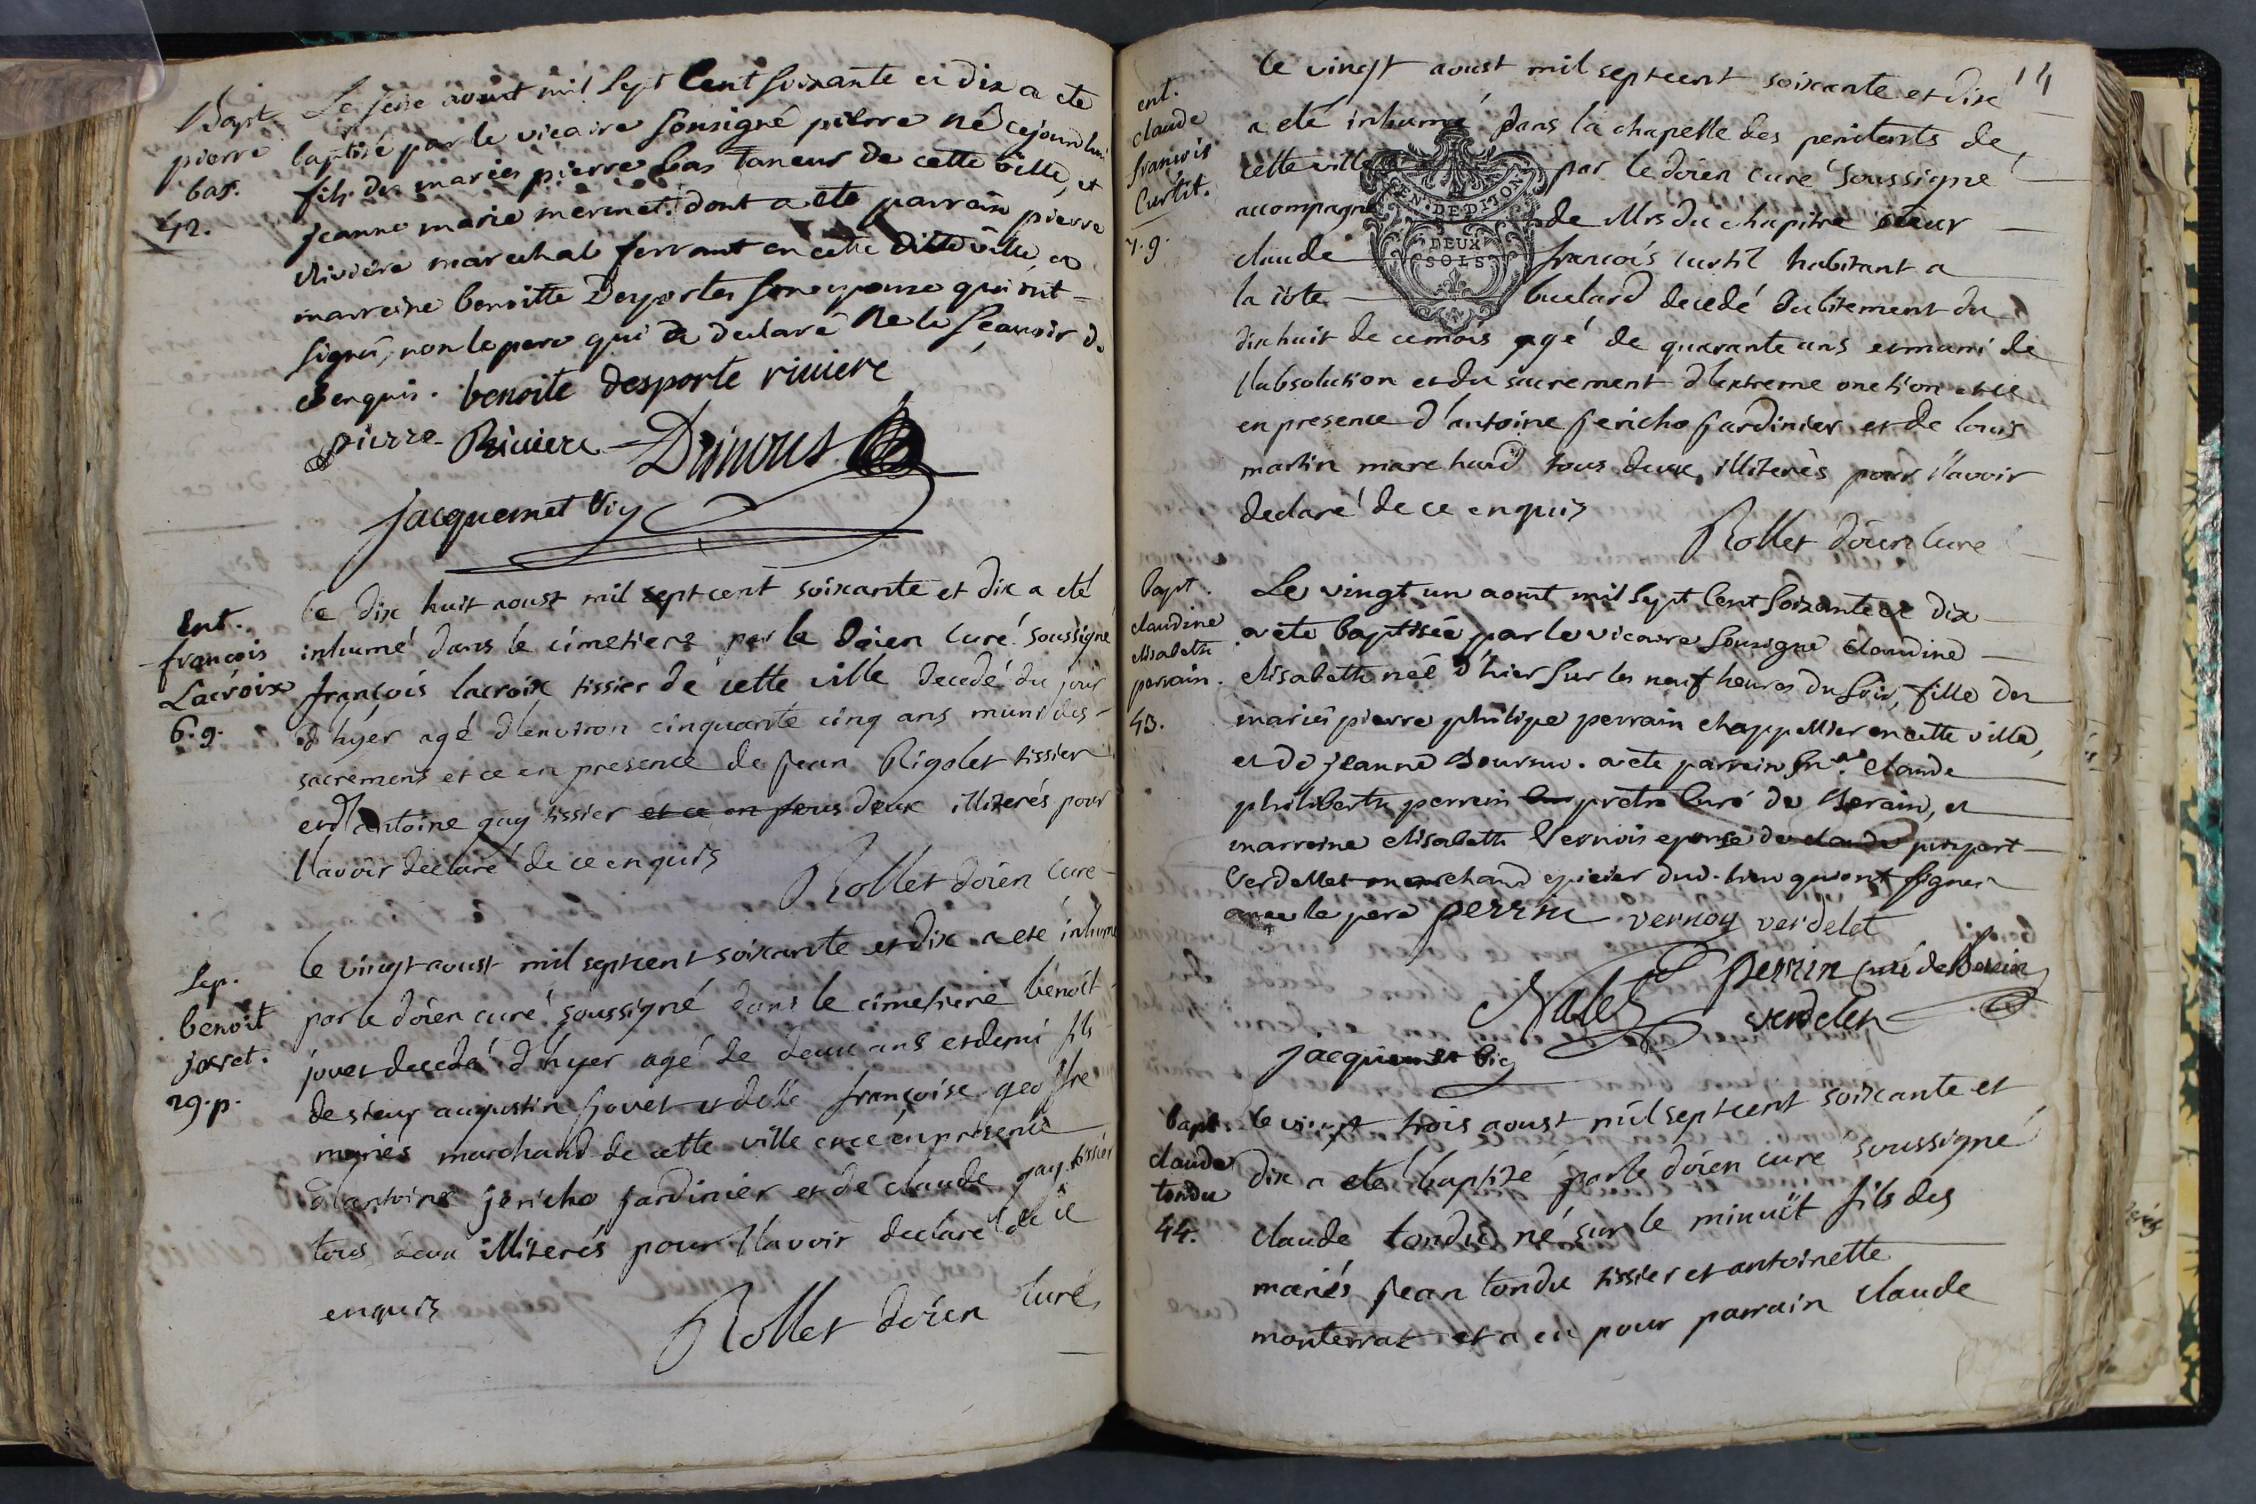 Bapt
pierre
bas.
42.
Le seise aoust mil sept Cent soixante et dix a ete
baptisé par le vicaire sousigné pierre né ce jourdhui
fils des mariés pierre bas taneur de cette ville, et
jeanne marie mermet. dont a été parrain pierre
Riviere marechal ferrant en cette ditte ville, et
marreine benoitte Desportes son epouse qui ont
signé, non le pere qui a declaré ne le sçavoir de
ce enquis. benoite desporte riviere
pierre Riviere
jacquemet vic
Ent.
françois
Lacroix
6.g.
le dix huit aoust mil sept cent soixante et dix a eté
inhumé dans le cimetiere par le doien curé soussigné
françois lacroix tissier de cette ville decedé du jour
d'hyer agé d'environ cinquante cinq ans muni des
sacremens et ce en presence de jean Rigolet tissier
et d'antoine guy tissier et ce en tous deux illiterés pour
l'avoir declaré de ce enquis
Rollet doien curé
Sep.
benoit
jovet.
29.p.
le vingt aoust mil sept cent soixante et dix a eté inhumé
par le doien curé soussigné dans le cimetiere benoit
jovet decedé d'hyer agé de deux ans et demi fils
de sieur augustin jovet et delle françoise geoffre
mariés marchand de cette ville et ce en presence
d'antoine jericho jardinier et de claude guy tissier
tous deux illiterés pour l'avoir declaré de ce
enquis
Rollet doien curé
14
ent.
claude
francois
Curtit.
7.g.
le vingt aoust mil sept cent soixante et dix
a eté inhumé dans la chapelle des penitents de
cette ville par le doien curé soussigné
accompagné de Mrs du chapitre sieur
claude francois curtil habitant a
la côte bulard decedé subitement du
dixhuit de ce mois agé de quarante ans et muni de
l'absolution et du sacrement d'extreme onction et ce
en presence d'antoine jericho jardinier et de louis
martin marchand tous deux illiterés pour l'avoir
declaré de ce enquis
Rollet doien curé
GEN. DE DIJON
DEUX
SOLS
bapt.
claudine
elisabeth
perrain.
43.
Le vingt un aoust mil sept Cent soixante et dix
a ete baptisée par le vicaire sousigné claudine
elisabeth née d'hier sur les neuf heures du soir, fille des
mariés pierre philipe perrain chappellier en cette ville,
et de jeanne. a ete parrein claude
philiberth perrein pretre curé de Serain, et
marreine elisabeth vernois epouse de claude
verdellet marchand epicier dud. lieu qui ont signer
avec le pere perrin vernoy verdelet
perrin curé de Serein
verdelet
jacquemet vic
bapt
claude
tondu
44.
le vingt trois aoust mil sept cent soixante et
dix a eté baptizé par le doien curé soussigné
claude tondu né sur le minuit fils des
mariés jean tondu tissier et antoinette
monterrat et a eu pour parrain claude